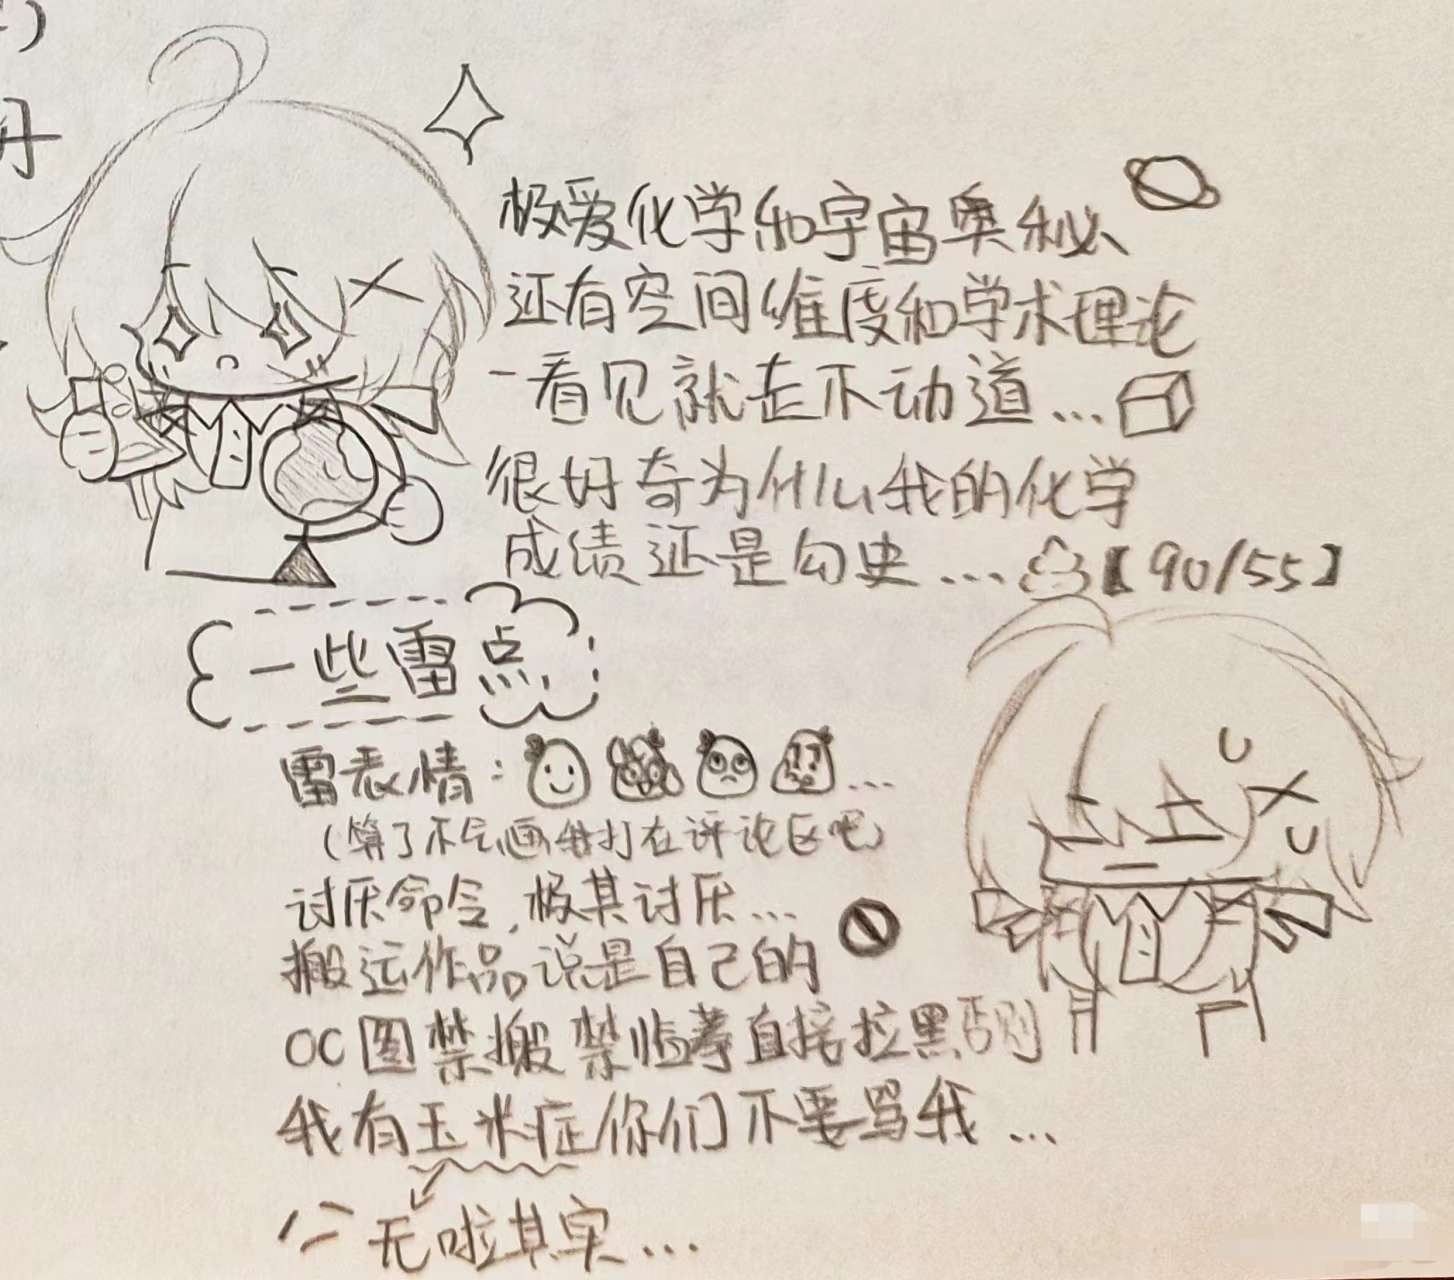 极爱化学和宇宙奥秘
还有空间维度和学术理论
一看见就走不动道...
很好奇为什么我的化学
成绩还是勾史...【90/55】
一些雷点
雷表情：...
（算了不会画我打在评论区吧）
讨厌命令，极其讨厌...
搬运作品说是自己的
OC图禁搬禁临摹直接拉黑否则
我有玉米症你们不要骂我...
无啦其实...